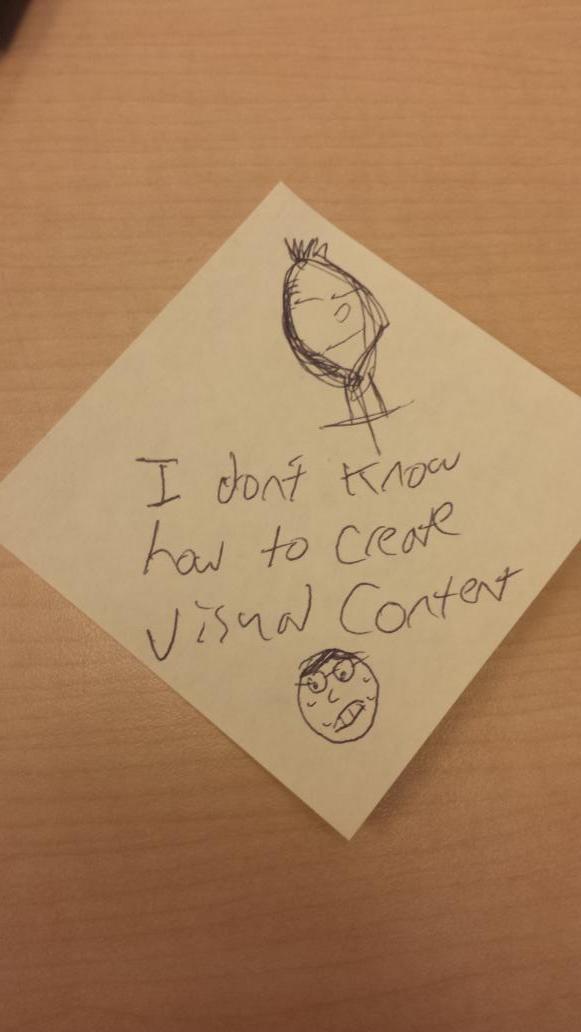 I don't know
how to create
visual content